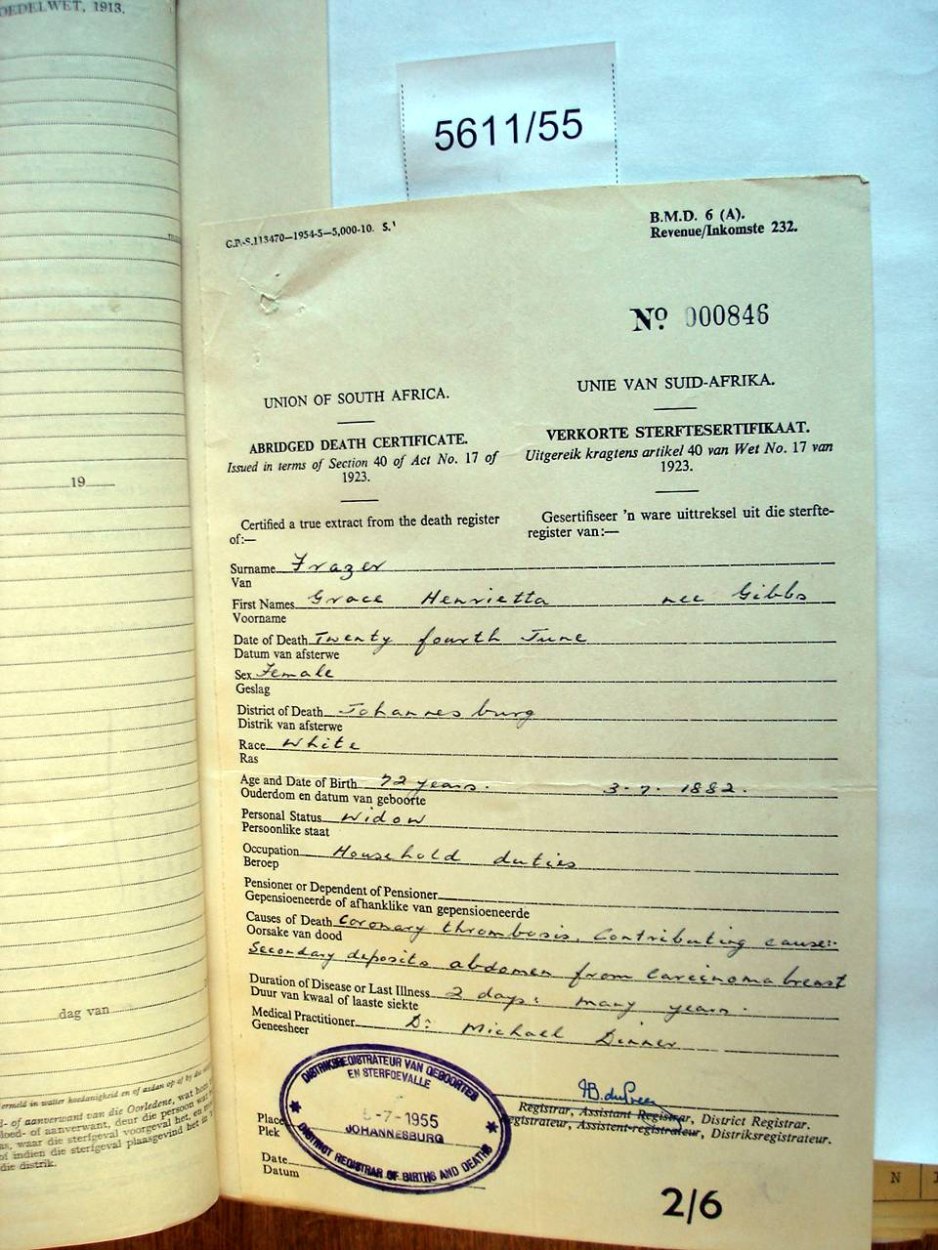 OEDELWET, 1913.
19
dag van
die distrik.
5611/55
G.P.-S.113470—1954-5—5,000-10. S.
B.M.D. 6 (A).
Revenue/Inkomste 232.
No 000846
UNION OF SOUTH AFRICA.
ABRIDGED DEATH CERTIFICATE.
Issued in terms of Section 40 of Act No. 17 of
1923.
Certified a true extract from the death register
of:—
UNIE VAN SUID-AFRIKA.
VERKORTE STERFTESERTIFIKAAT.
Uitgereik kragtens artikel 40 van Wet No. 17 van
1923.
Gesertifiseer 'n ware uittreksel uit die sterfte-
register van:—
Surname Frazer
Van
First Names Grace Henrietta nee Gibbs
Voorname
Date of Death Twenty fourth June
Datum van afsterwe
Sex Female
Geslag
District of Death Johannesburg
Distrik van afsterwe
Race White
Ras
Age and Date of Birth 72 years. 3-7-1882.
Ouderdom en datum van geboorte
Personal Status Widow
Persoonlike staat
Occupation Household duties
Beroep
Pensioner or Dependent of Pensioner
Gepensioeneerde of afhanklike van gepensioeneerde
Causes of Death Coronary thrombosis. Contributing cause:-
Oorsake van dood
Secondary deposits abdomen from carcinoma breast
Duration of Disease or Last Illness 2 days: many years.
Duur van kwaal of laaste siekte
Medical Practitioner Dr Michael Dinner
Geneesheer
DISTRIKSREGISTRATEUR VAN GEBOORTES
EN STERFGEVALLE
-7-1955
JOHANNESBURG
DISTRICT REGISTRAR OF BIRTHS AND DEATHS
Registrar, Assistant Registrar, District Registrar.
Registrateur, Assistent-registrateur, Distriksregistrateur.
Place
Plek
Date
Datum
2/6
N